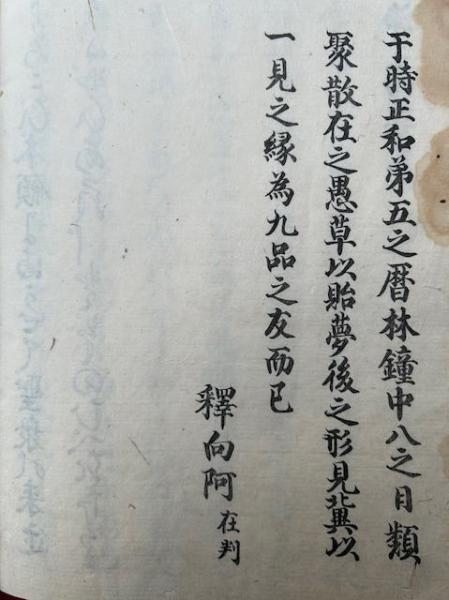 于時正和第五之暦林鐘中八之日類
聚散在之愚草以貽夢後之形見冀以
一見之縁為九品之友而已
釋向阿在判